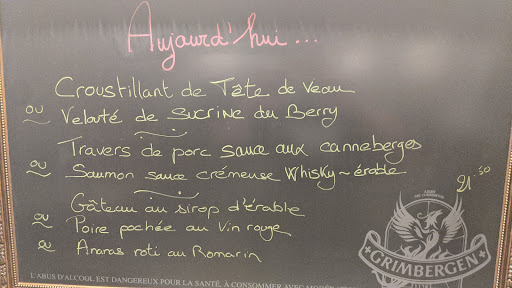 Aujourd'hui...
Croustillant de Tête de Veau
ou Velouté de SUCRINE du Berry
Travers de porc sauce aux canneberges
ou Saumon sauce crémeuse Whisky~érable
21.50
Gâteau au sirop d'érable
ou Poire pochée au Vin rouge
ou Ananas roti au Romarin
GRIMBERGEN
L'ABUS D'ALCOOL EST DANGEREUX POUR LA SANTÉ, À CONSOMMER AVEC